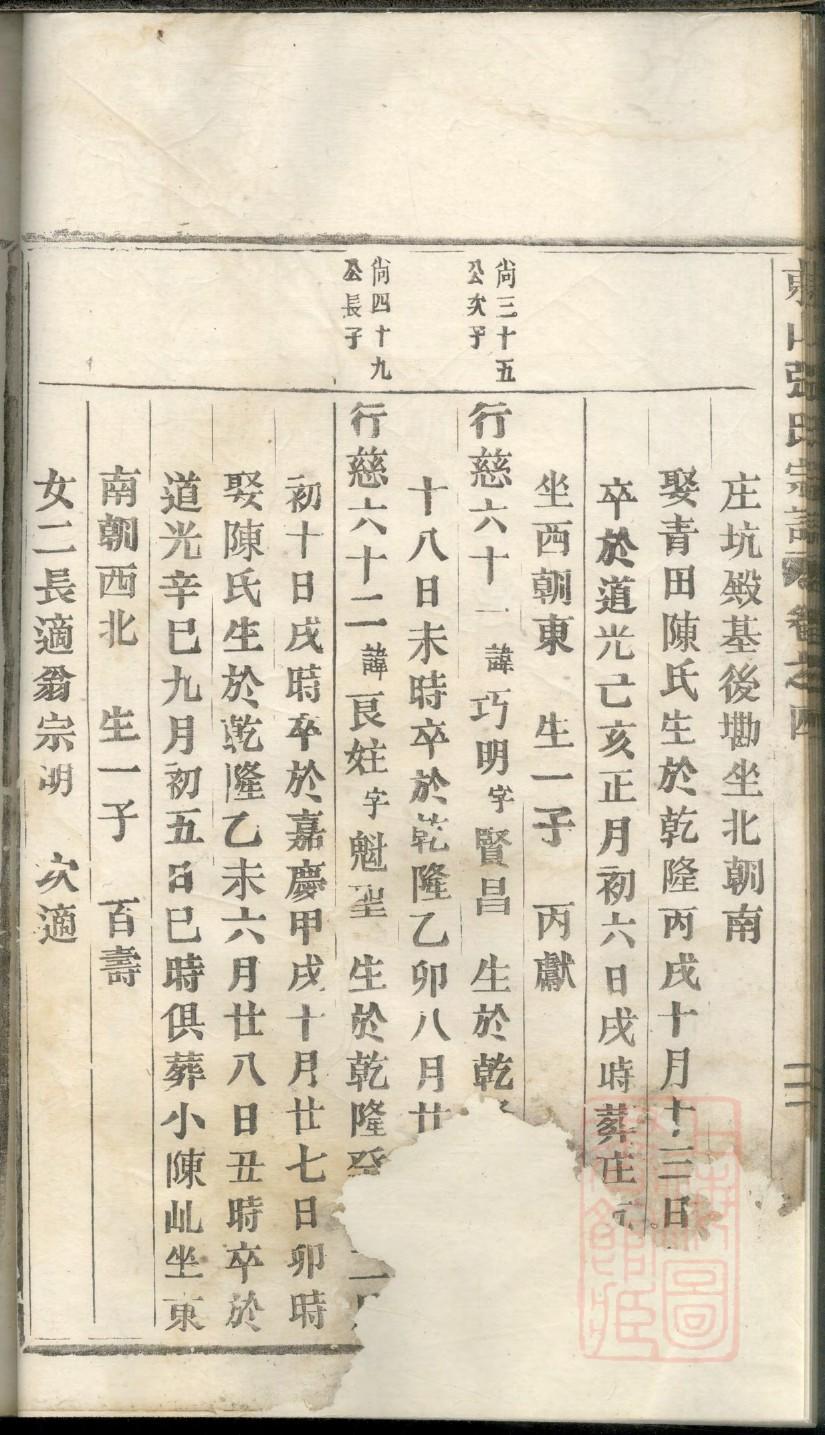 張氏宗譜 卷之四
庄坑殿基後墈坐北朝南
娶青田陳氏生於乾隆丙戌十月十三日
卒於道光己亥正月初六日戌時葬庄
坐西朝東 生一子 丙獻
尚三十五
公次子
行慈六十一 諱巧明字賢昌 生於乾
十八日未時卒於乾隆乙卯八月廿
尚四十九
公長子
行慈六十二 諱良妵字魁聖 生於乾隆
初十日戌時卒於嘉慶甲戌十月廿七日卯時
娶陳氏生於乾隆乙未六月廿八日丑時卒於
道光辛巳九月初五日巳時俱葬小陳乢坐東
南朝西北 生一子 百壽
女二長適翁宗明 次適